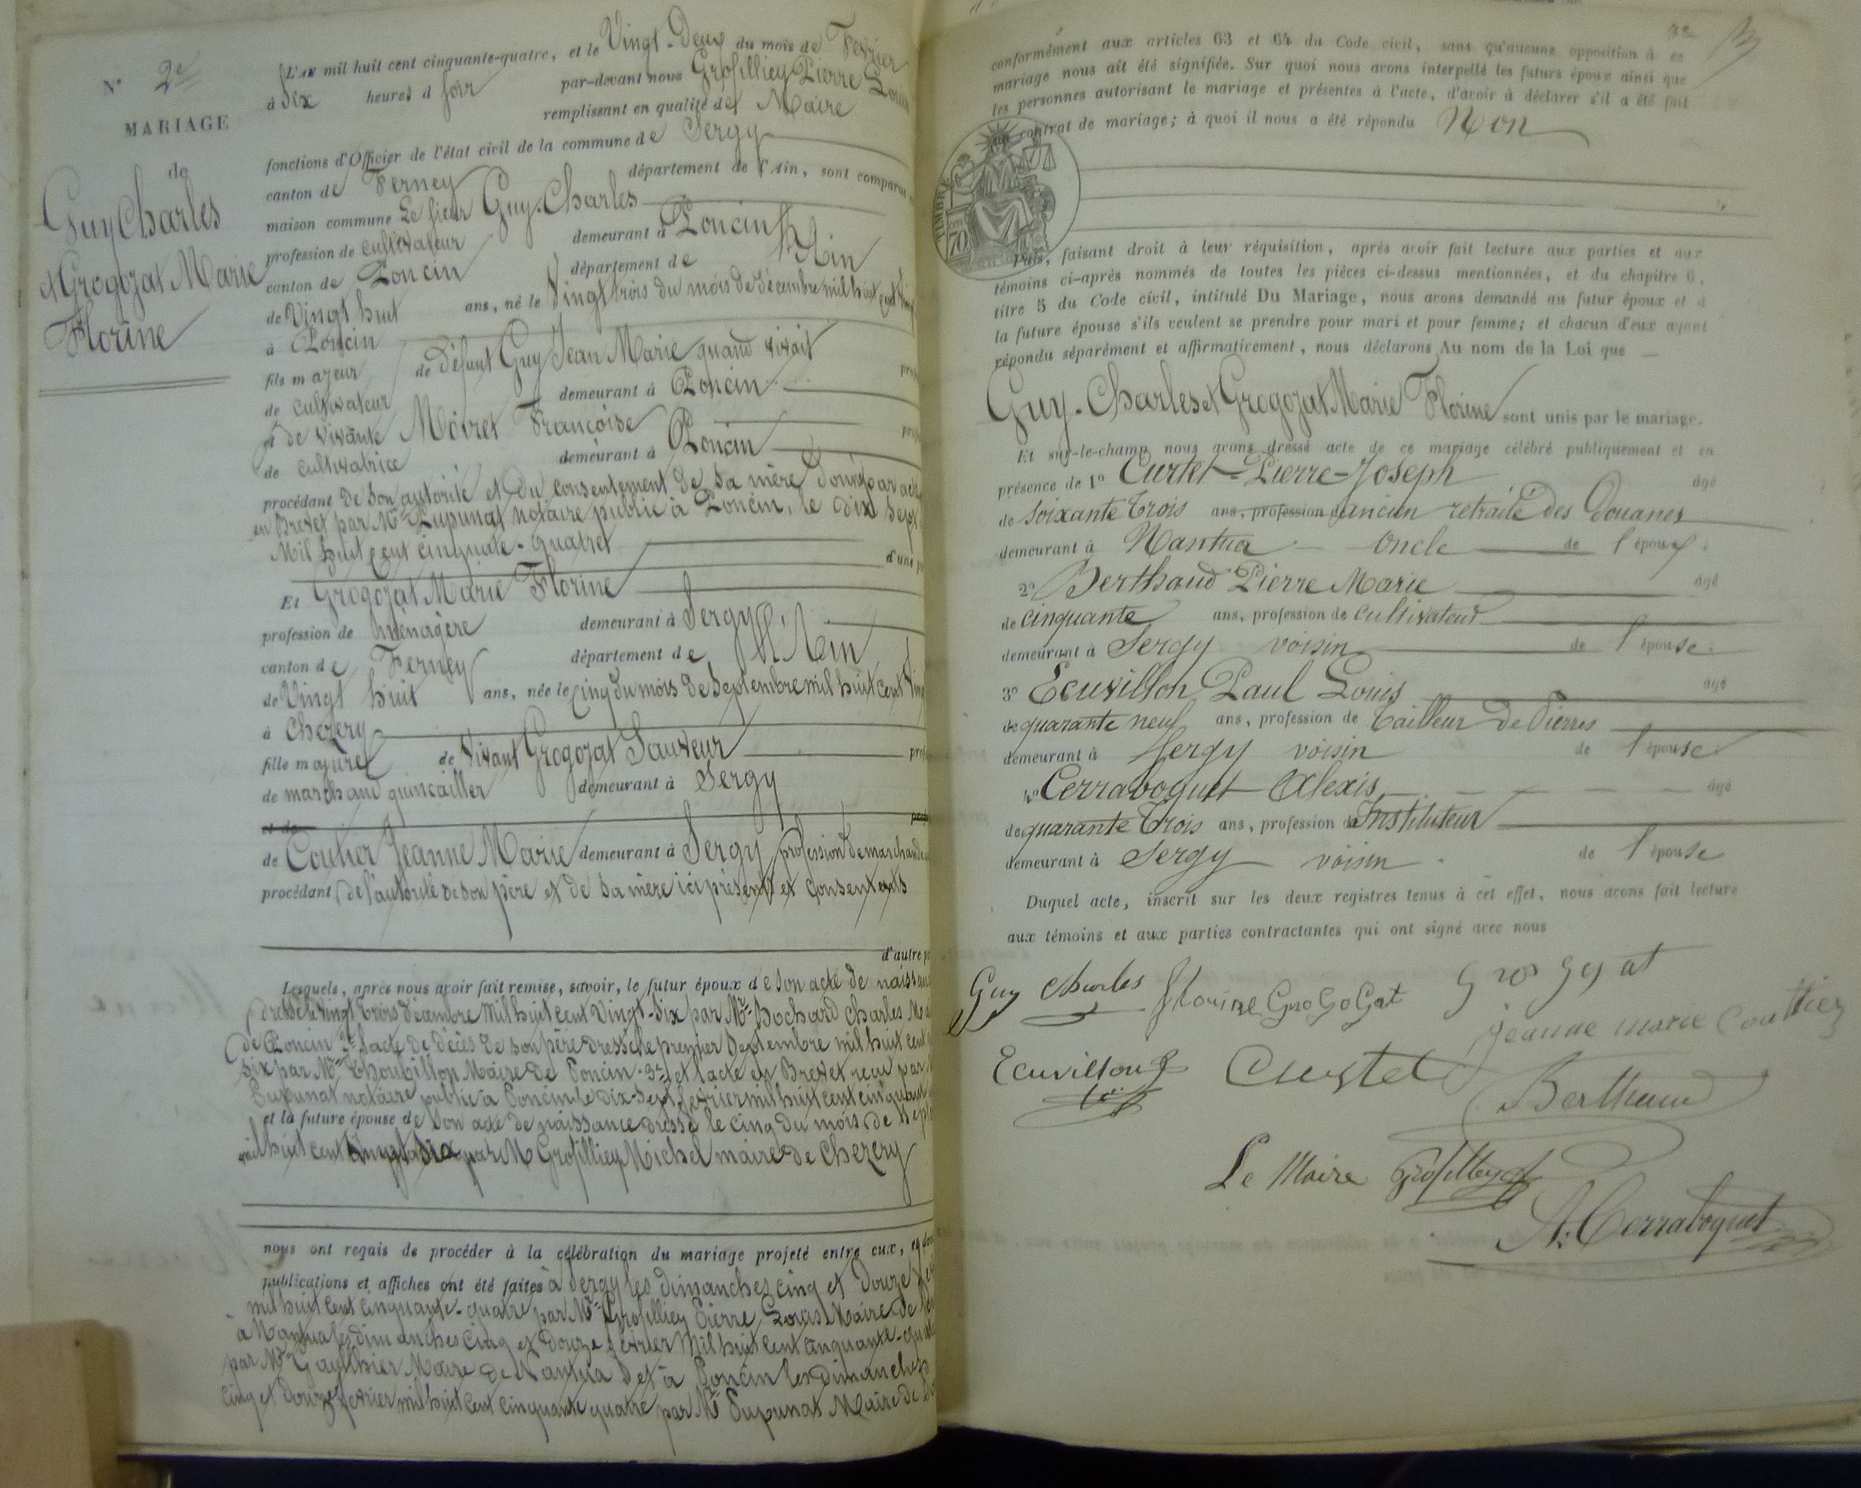 N° 2e
MARIAGE
de
Guy Charles
et Grogozat Marie
Florine
L'AN mil huit cent cinquante-quatre, et le Vingt-Deux du mois de Fevrier
à Six heures d soir par-devant nous Grosilliey Pierre Louis
remplissant en qualité de Maire
fonctions d'Officier de l'état civil de la commune de Sergy
canton de Ferney département de l'Ain, sont comparus
maison commune Le sieur Guy-Charles
profession de cultivateur demeurant à Poncin
canton de Poncin département de l'Ain
de Vingt huit ans, né le Vingt trois du mois de décembre mil huit cent
à Poncin
fils majeur de défunt Guy Jean Marie quand vivait
de cultivateur demeurant à Poncin
et de vivante Moiret Françoise
de cultivatrice demeurant à Poncin
procédant de son autorité et du consentement de sa mère donné par acte
en Brevet par Me Pupunat notaire public à Poncin, le dix sept
Mil huit cent cinquante-quatre
d'une
Et Grogozat Marie Florine
profession de ménagère demeurant à Sergy
canton de Ferney département de l'Ain
de Vingt huit ans, née le Cinq du mois de Septembre mil huit cent
à Chezery
fille majeure de Vivant Grogozat Sauveur
de marchand quincailler demeurant à Sergy
et de
de Coutier Jeanne Marie demeurant à Sergy profession de marchande
procédant de l'autorité de son père et de sa mère ici présents et consentents
d'autre
Lesquels, après nous avoir fait remise, savoir, le futur époux de son acte de naissance
dressé le vingt trois décembre Mil huit cent Vingt-Six par Mr Bochard Charles
de Poncin 2° l'acte de décès de son père dressé le premier Septembre mil huit cent
six par Mr Maire de Poncin 3° et l'acte en Brevet reçu par
Pupunat notaire public à Poncin le dix-Sept fevrier mil huit cent cinquante
et la future épouse de Son acte de naissance dressé le cinq du mois de
mil huit cent vingt six par M Grosilliey Michel maire de Chezery
nous ont requis de procéder à la célébration du mariage projeté entre eux,
publications et affiches ont été faites à Sergy les dimanches cinq et douze
mil huit cent cinquante-quatre par Mr Grosilliey Pierre Louis Maire de
à Nantua les dimanches cinq et douze fevrier Mil huit cent cinquante-
par Mr Gauthier Maire de Nantua et à Poncin les dimanches
cinq et douze fevrier mil huit cent cinquante quatre par Mr Pupunat Maire de
conformément aux articles 63 et 64 du Code civil, sans qu'aucune opposition à ce
mariage nous ait été signifiée. Sur quoi nous avons interpellé les futurs époux ainsi que
les personnes autorisant le mariage et présentes à l'acte, d'avoir à déclarer s'il a été fait
un contrat de mariage; à quoi il nous a été répondu Non
TIMBRE
70
Puis, faisant droit à leur réquisition, après avoir fait lecture aux parties et aux
témoins ci-après nommés de toutes les pièces ci-dessus mentionnées, et du chapitre 6,
titre 5 du Code civil, intitulé Du Mariage, nous avons demandé au futur époux et à
la future épouse s'ils veulent se prendre pour mari et pour femme; et chacun d'eux ayant
répondu séparément et affirmativement, nous déclarons Au nom de la Loi que
Guy-Charles et Grogozat Marie Florine sont unis par le mariage.
Et sur-le-champ nous avons dressé acte de ce mariage célébré publiquement et en
présence de 1° Curtet-Pierre-Joseph âgé
de soixante Trois ans, profession d'ancien retraité des Douanes
demeurant à Nantua Oncle de l'époux
2° Berthaud Pierre Marie âgé
de cinquante ans, profession de cultivateur
demeurant à Sergy voisin de l'épouse
3° Ecuvillon Paul Louis âgé
de quarante neuf ans, profession de Tailleur de Pierres
demeurant à Sergy voisin de l'épouse
4° Cerraboguet Alexis âgé
de quarante Trois ans, profession d'Instituteur
demeurant à Sergy voisin de l'épouse
Duquel acte, inscrit sur les deux registres tenus à cet effet, nous avons fait lecture
aux témoins et aux parties contractantes qui ont signé avec nous
Guy charles florine GroGoGat Grosgojat
jeanne marie Couttier
Ecuvillon Curtet Berthaud
Le Maire Grosilley
A. Cerraboguet